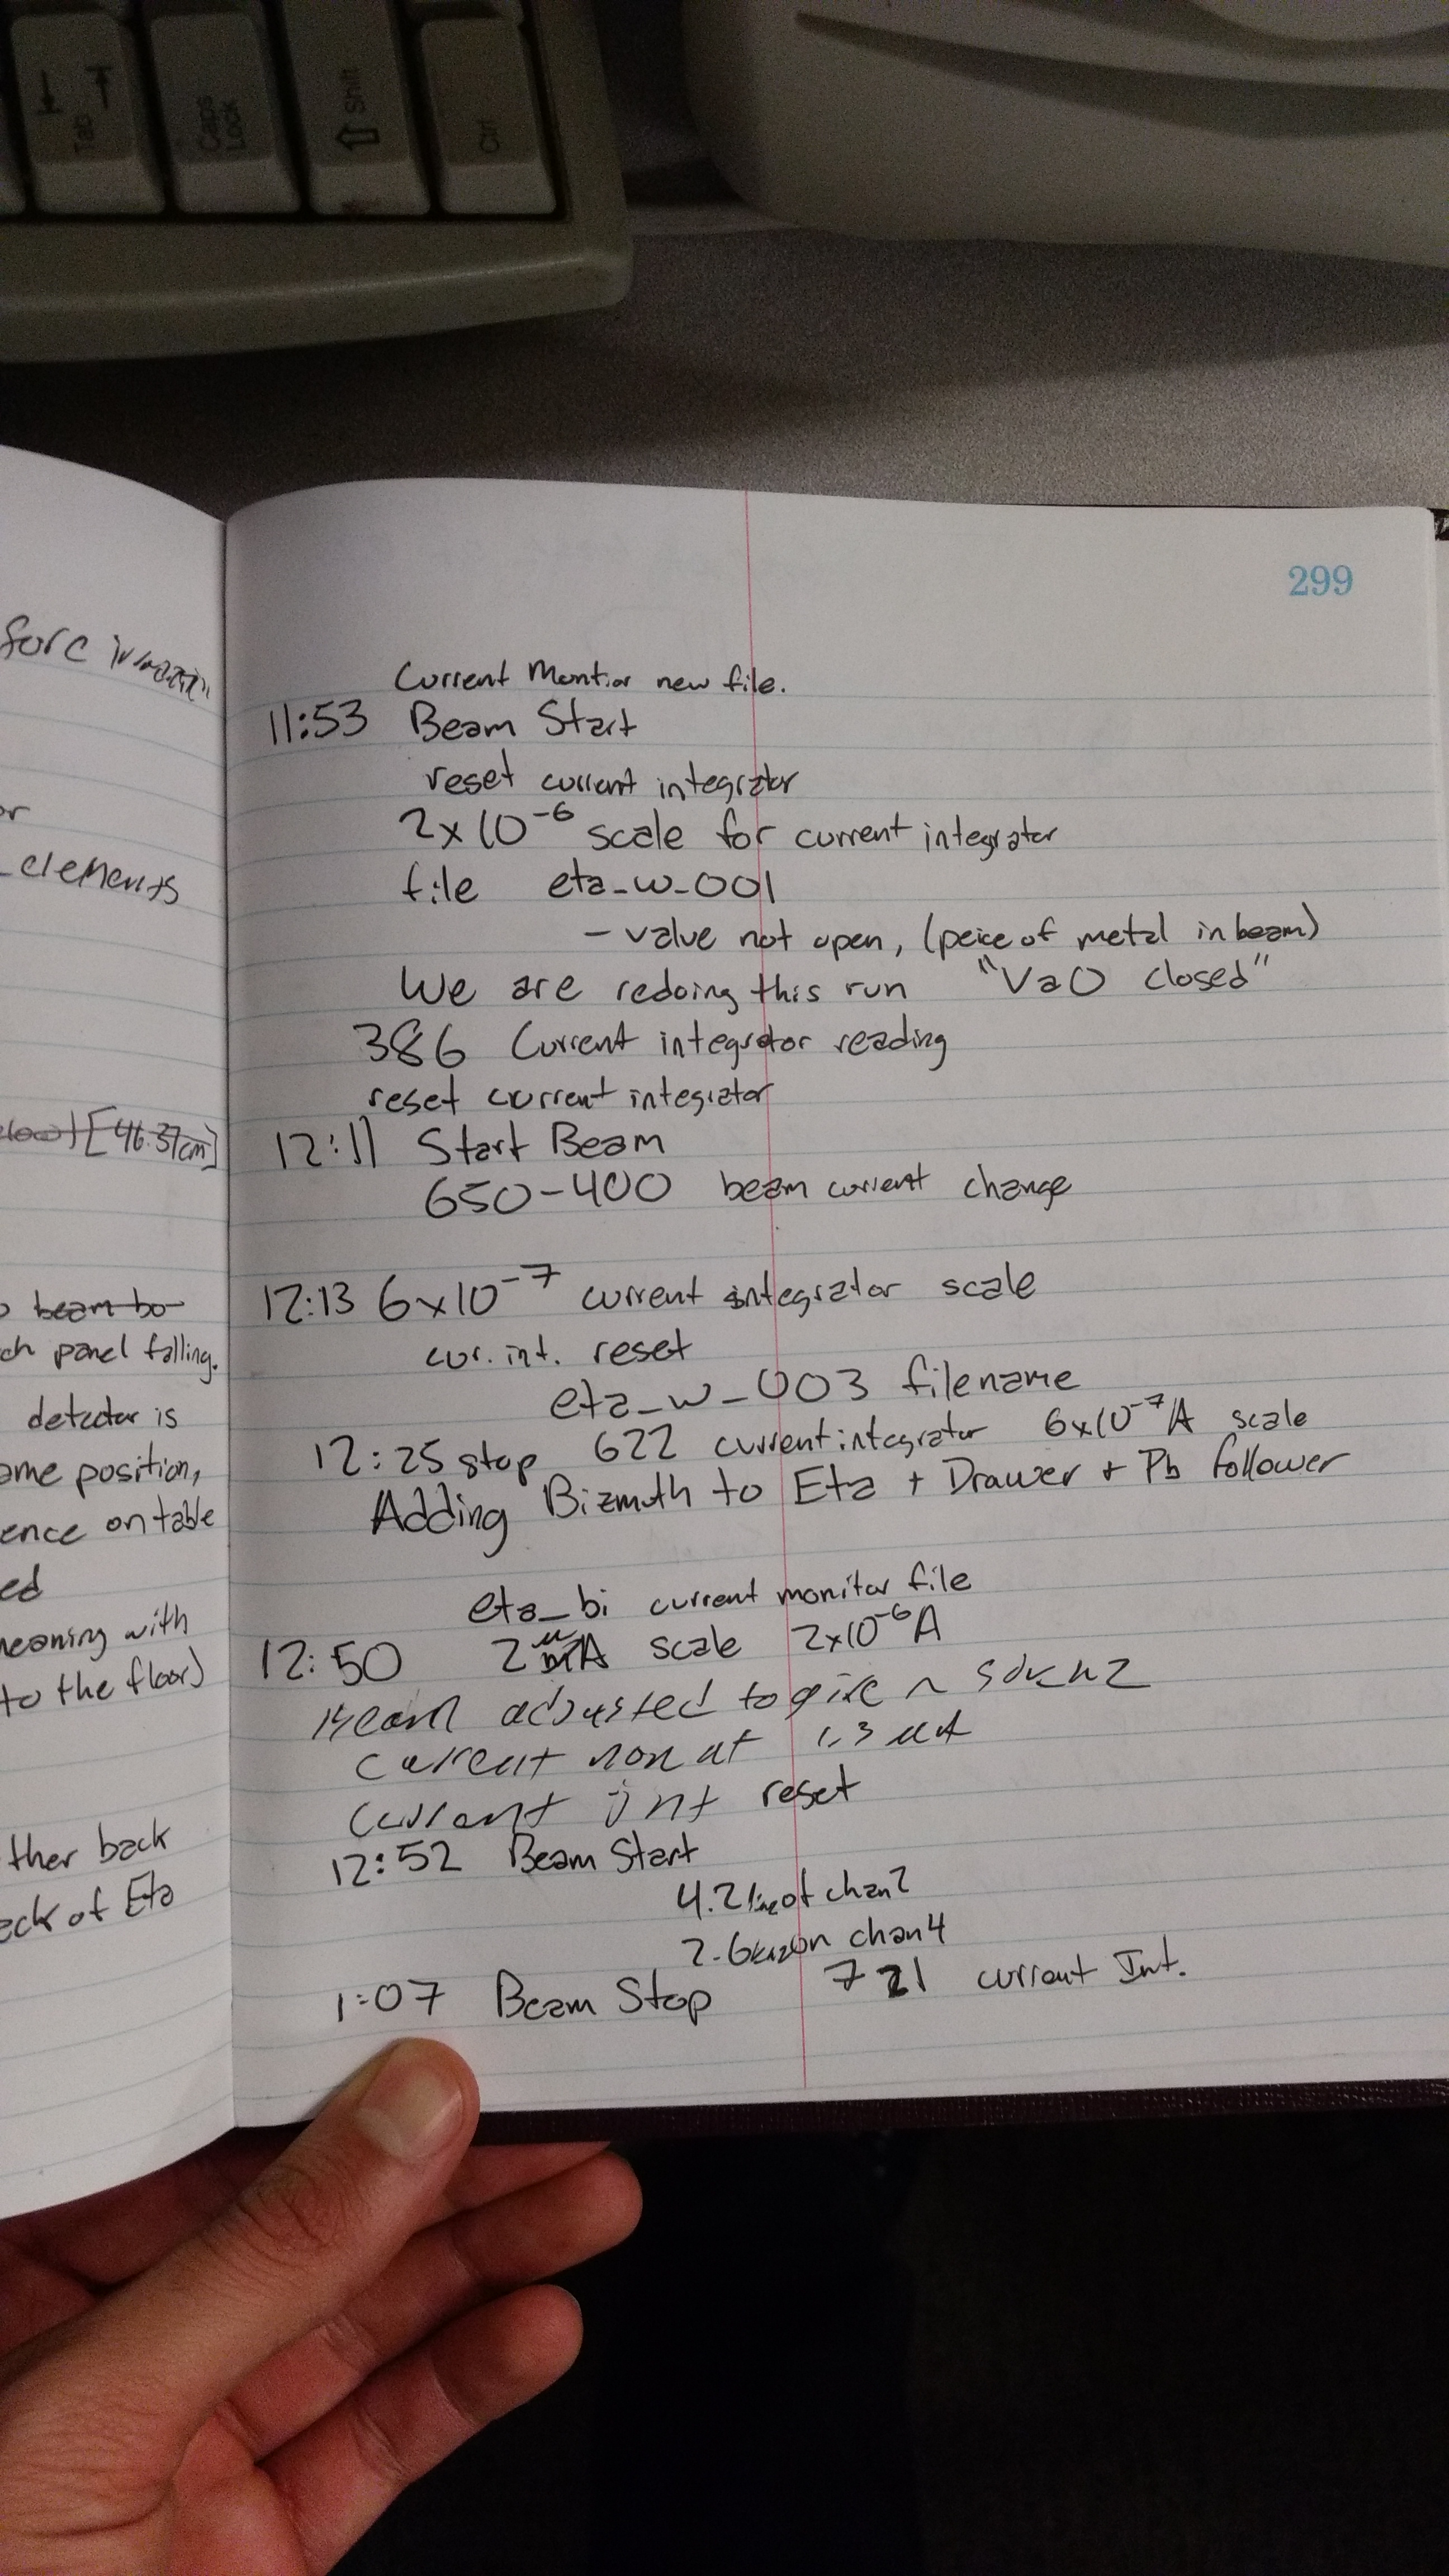 Tab
Caps
Lock
Shift
Ctrl
force
or
elements
[46.37cm]
beam bo
ch panel falling.
detector is
ame position,
ence on table
ed
meaning with
to the floor)
ther back
ack of Eta
299
Current Montior new file.
11:53 Beam Start
reset current integrator
2x10⁻⁶ scale for current integrator
file eta_w_001
- value not open, (peice of metal in beam)
We are redoing this run "VaO closed"
386 Current integrator reading
reset current integrator
12:11 Start Beam
650-400 beam current change
12:13 6x10⁻⁷ current integrator scale
cur. int. reset
eta_w_003 filename
12:25 stop 622 current integrator 6x10⁻⁷A scale
Adding Bizmuth to Eta + Drawer + Pb follower
eta_bi current monitor file
12:50 2 μA scale 2x10⁻⁶A
Beam adjusted to give ~
current mon at 1.3 μA
current int reset
12:52 Beam Start
4.2 of chan2
2.6 on chan4
1:07 Beam Stop 721 current Int.